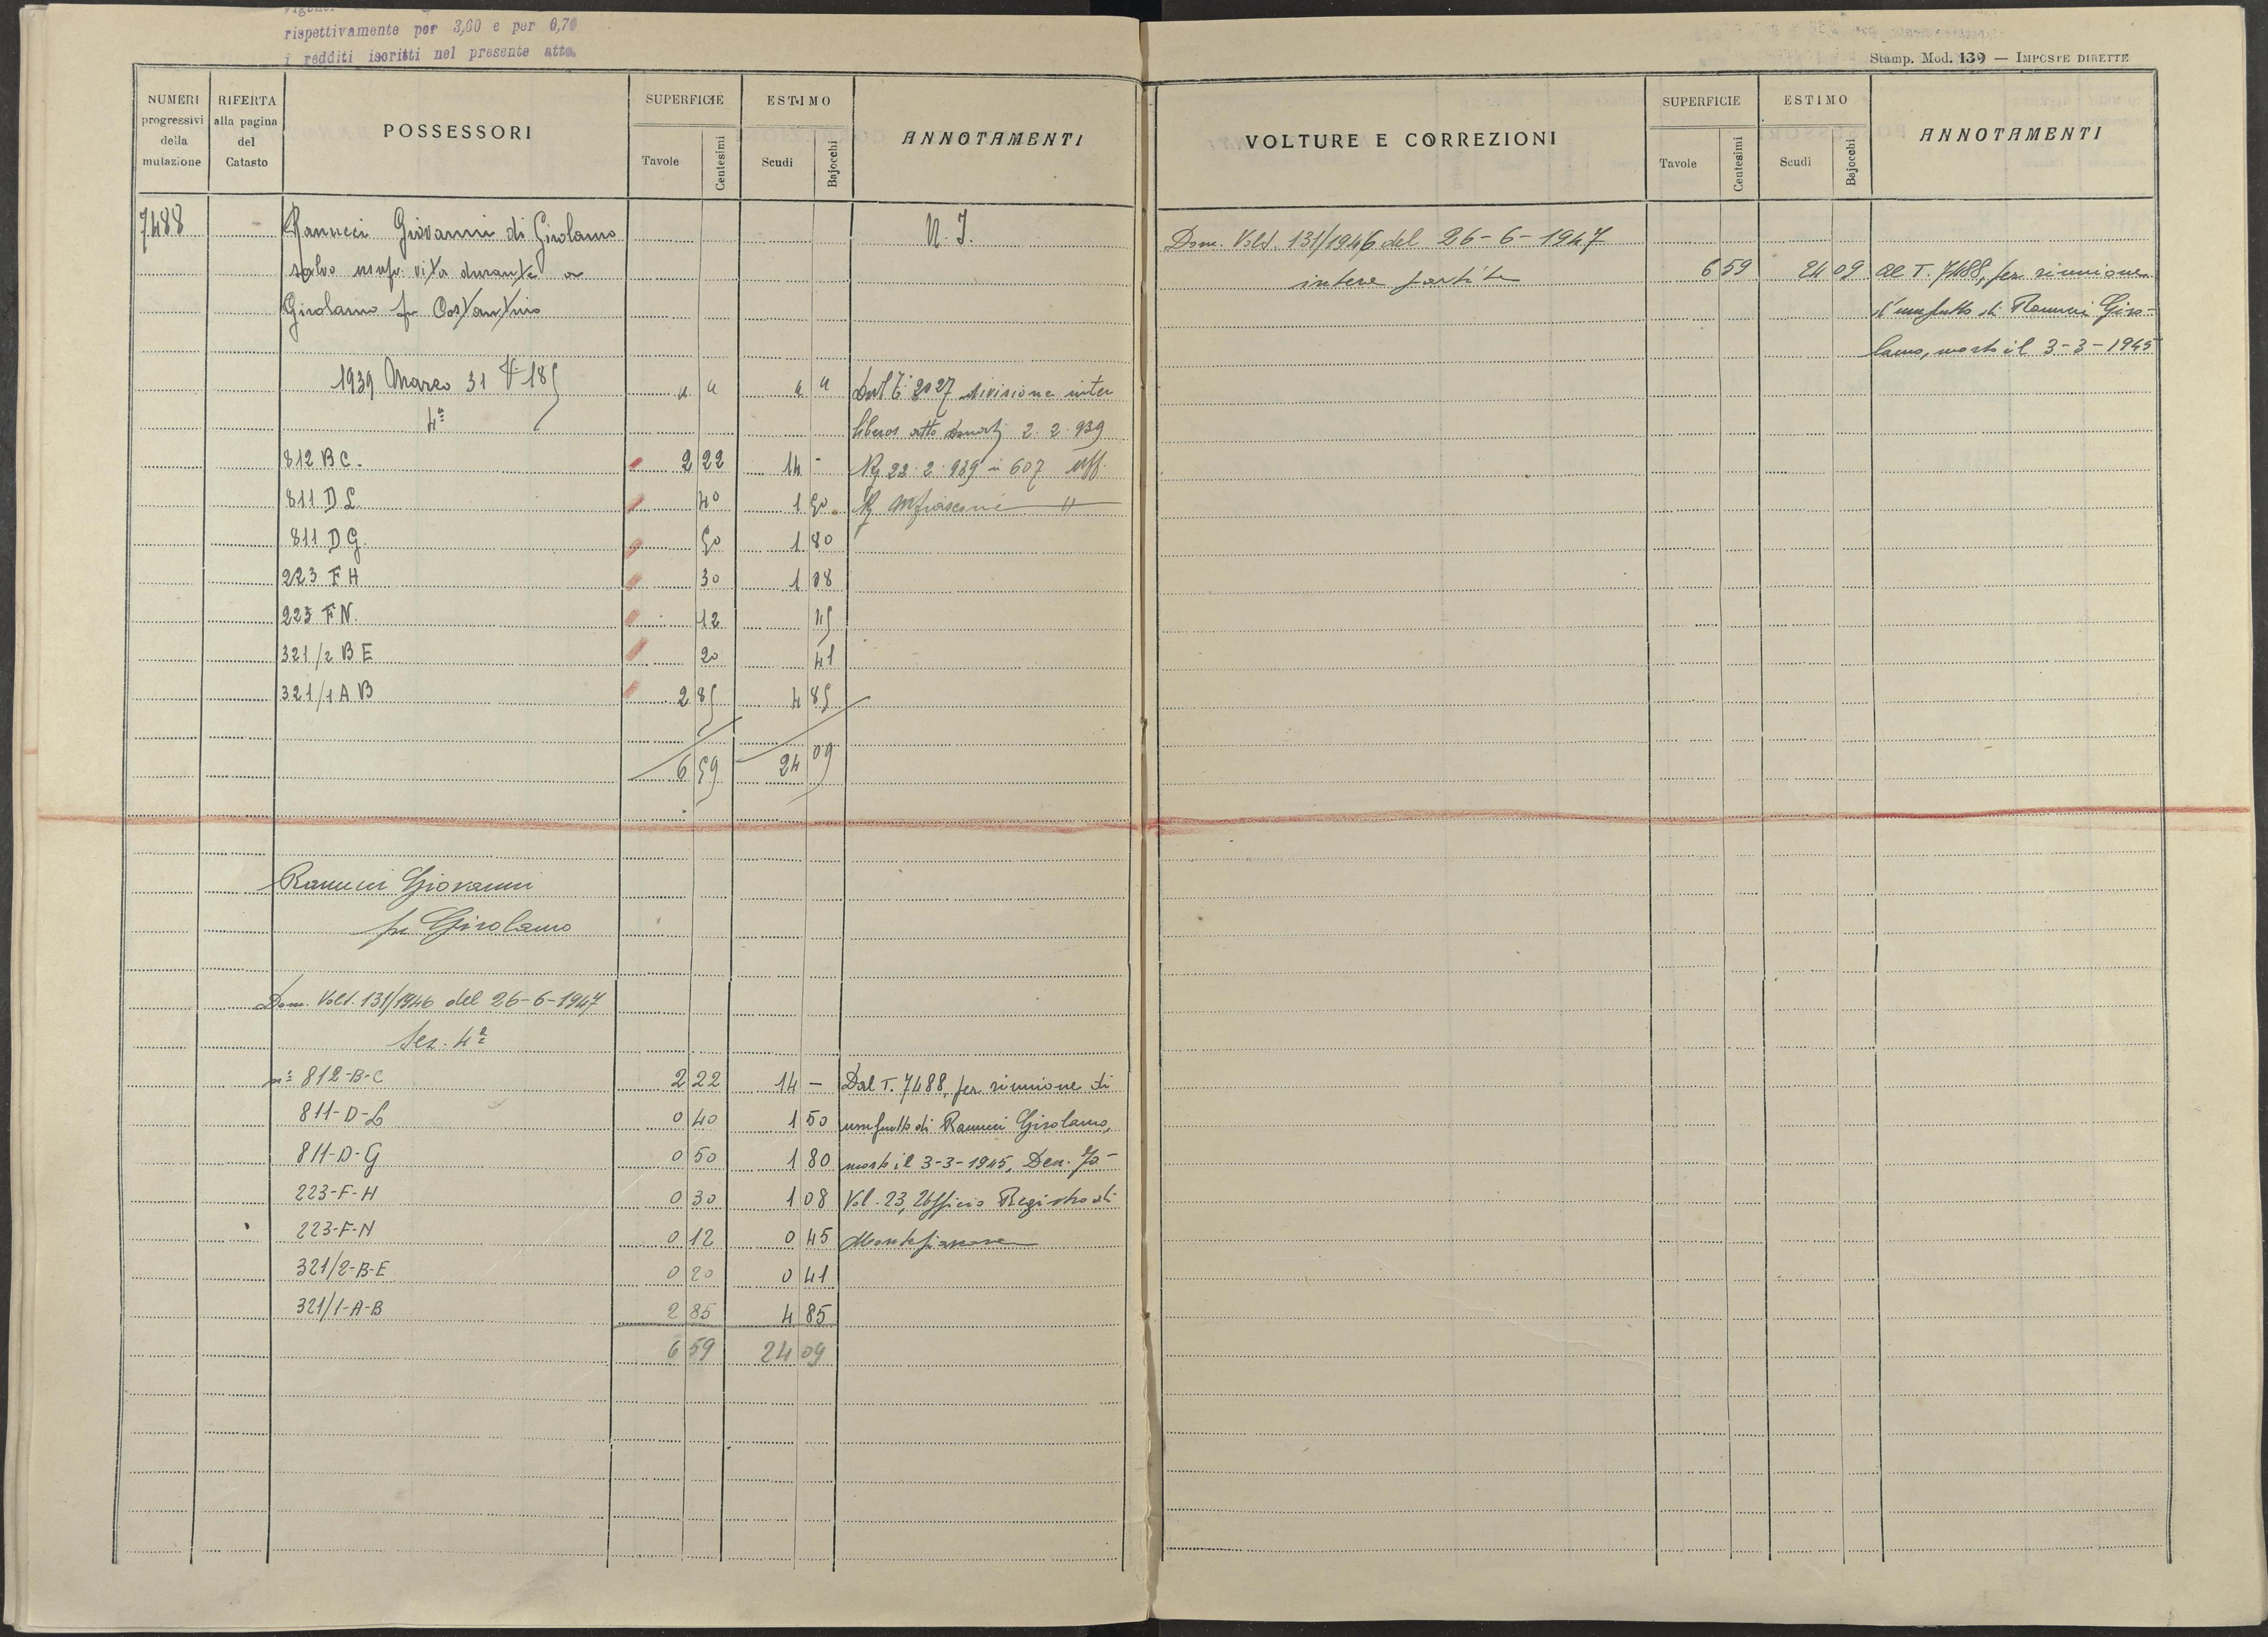 rispettivamente per 3,60 e per 0,70
i redditi iscritti nel presente atto.
NUMERI progressivi della mutazione
RIFERTA alla pagina del Catasto
POSSESSORI
SUPERFICIE
Tavole Centesimi
ESTIMO
Scudi Bajocchi
ANNOTAMENTI
7488 Ranucci Giovanni di Girolamo N. I.
salvo usufr. vita durante a
Girolamo fu Costantino
1939 Marzo 31 V. 185 " " " " Dal T. 2027 divisione inter
4ª liberos atto 2.2.939
812 BC. 2 22 14 - Rg 22.2.939 n 607 Uff.
811 D L 40 1 50 Rg Mfiascone "
811 D G. 50 1 80
223 F H 30 1 08
223 F N. 12 45
321/2 B E 20 41
321/1 A B 2 85 4 85
6 59 24 09
Ranucci Giovanni
fu Girolamo
Dom. Volt. 131/1946 del 26-6-1947
Sez. 4ª
nⁱ 812-B-C 2 22 14 — Dal T. 7488, per riunione di
811-D-L 0 40 1 50 usufrutto di Ranucci Girolamo,
811-D-G 0 50 1 80 morto il 3-3-1945. Den. 70-
223-F-H 0 30 1 08 Vol. 23, Ufficio Registro di
223-F-N 0 12 0 45 Montefiascone
321/2-B-E 0 20 0 41
321/1-A-B 2 85 4 85
6 59 24 09
Stamp. Mod. 139 — IMPOSTE DIRETTE
VOLTURE E CORREZIONI
SUPERFICIE
Tavole Centesimi
ESTIMO
Scudi Bajocchi
ANNOTAMENTI
Dom. Volt. 131/1946 del 26-6-1947
intera partita 6 59 24 09 al T. 7488, per riunione
d'usufrutto di Ranucci Giro-
lamo, morto il 3-3-1945